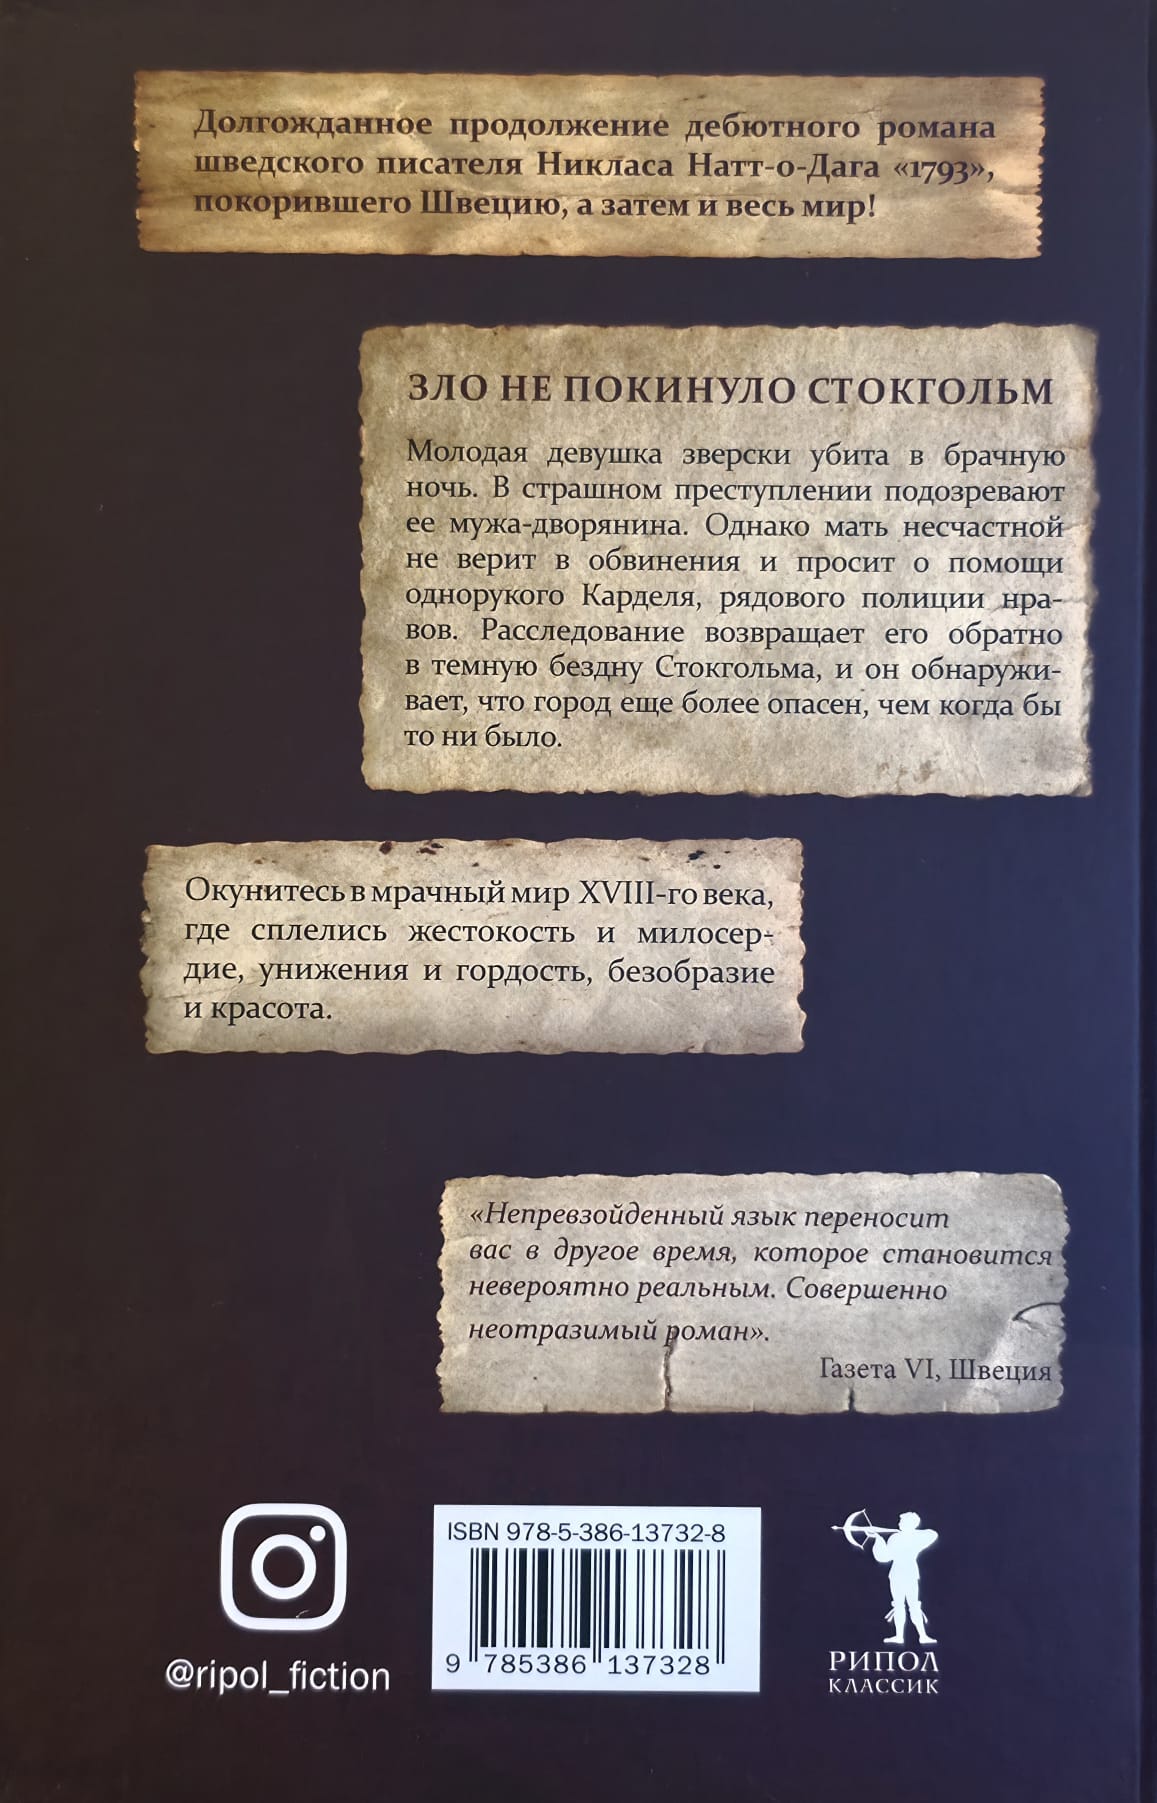 Долгожданное продолжение дебютного романа
шведского писателя Никласа Натт-о-Дага «1793»,
покорившего Швецию, а затем и весь мир!
ЗЛО НЕ ПОКИНУЛО СТОКГОЛЬМ
Молодая девушка зверски убита в брачную
ночь. В страшном преступлении подозревают
ее мужа-дворянина. Однако мать несчастной
не верит в обвинения и просит о помощи
однорукого Карделя, рядового полиции нра-
вов. Расследование возвращает его обратно
в темную бездну Стокгольма, и он обнаружи-
вает, что город еще более опасен, чем когда бы
то ни было.
Окунитесь в мрачный мир XVIII-го века,
где сплелись жестокость и милосер-
дие, унижения и гордость, безобразие
и красота.
«Непревзойденный язык переносит
вас в другое время, которое становится
невероятно реальным. Совершенно
неотразимый роман».
Газета VI, Швеция
ISBN 978-5-386-13732-8
9 785386 137328
@ripol_fiction
РИПОЛ
КЛАССИК